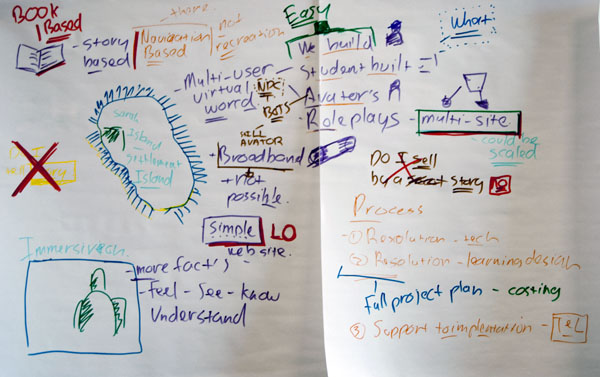 BOOK
Based
- story
based
Navigation
Based
not
recreation
Easy
We build
Student built
What
- Multi-user
virtual
worrd
NPC
BOTS
Avatar's
Roleplays - multi-site
could be
scaled
Island
Settlement
Island
AVATOR
+ Broadband
+ not
possible.
Do I sell
by a story
NO
simple LO
web site.
Process
① Resolution - tech
② Resolution - learning design
Full project plan - costing
③ Support to implementation - TEL
- more fact's
- feel - See - know
Understand